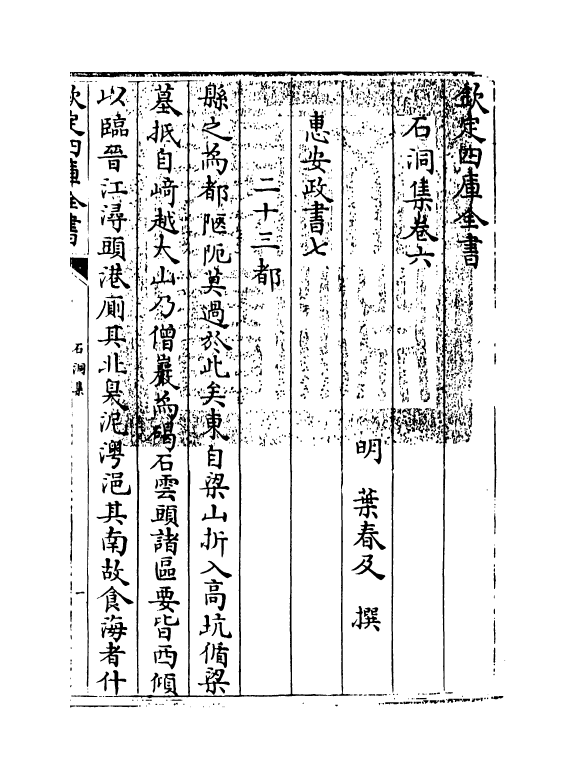 欽定四庫全書
石洞集卷六
明 葉春及 撰
惠安政書七
二十三都
縣之為都陋阨莫過於此矣東自梁山折入高坑循梁
墓抵自﨑越大山乃僧巖為碣石雲頭諸區要皆西傾
以臨晉江潯頭港廁其北臬泥灣浥其南故食海者什
欽定四庫全書
石洞集
一